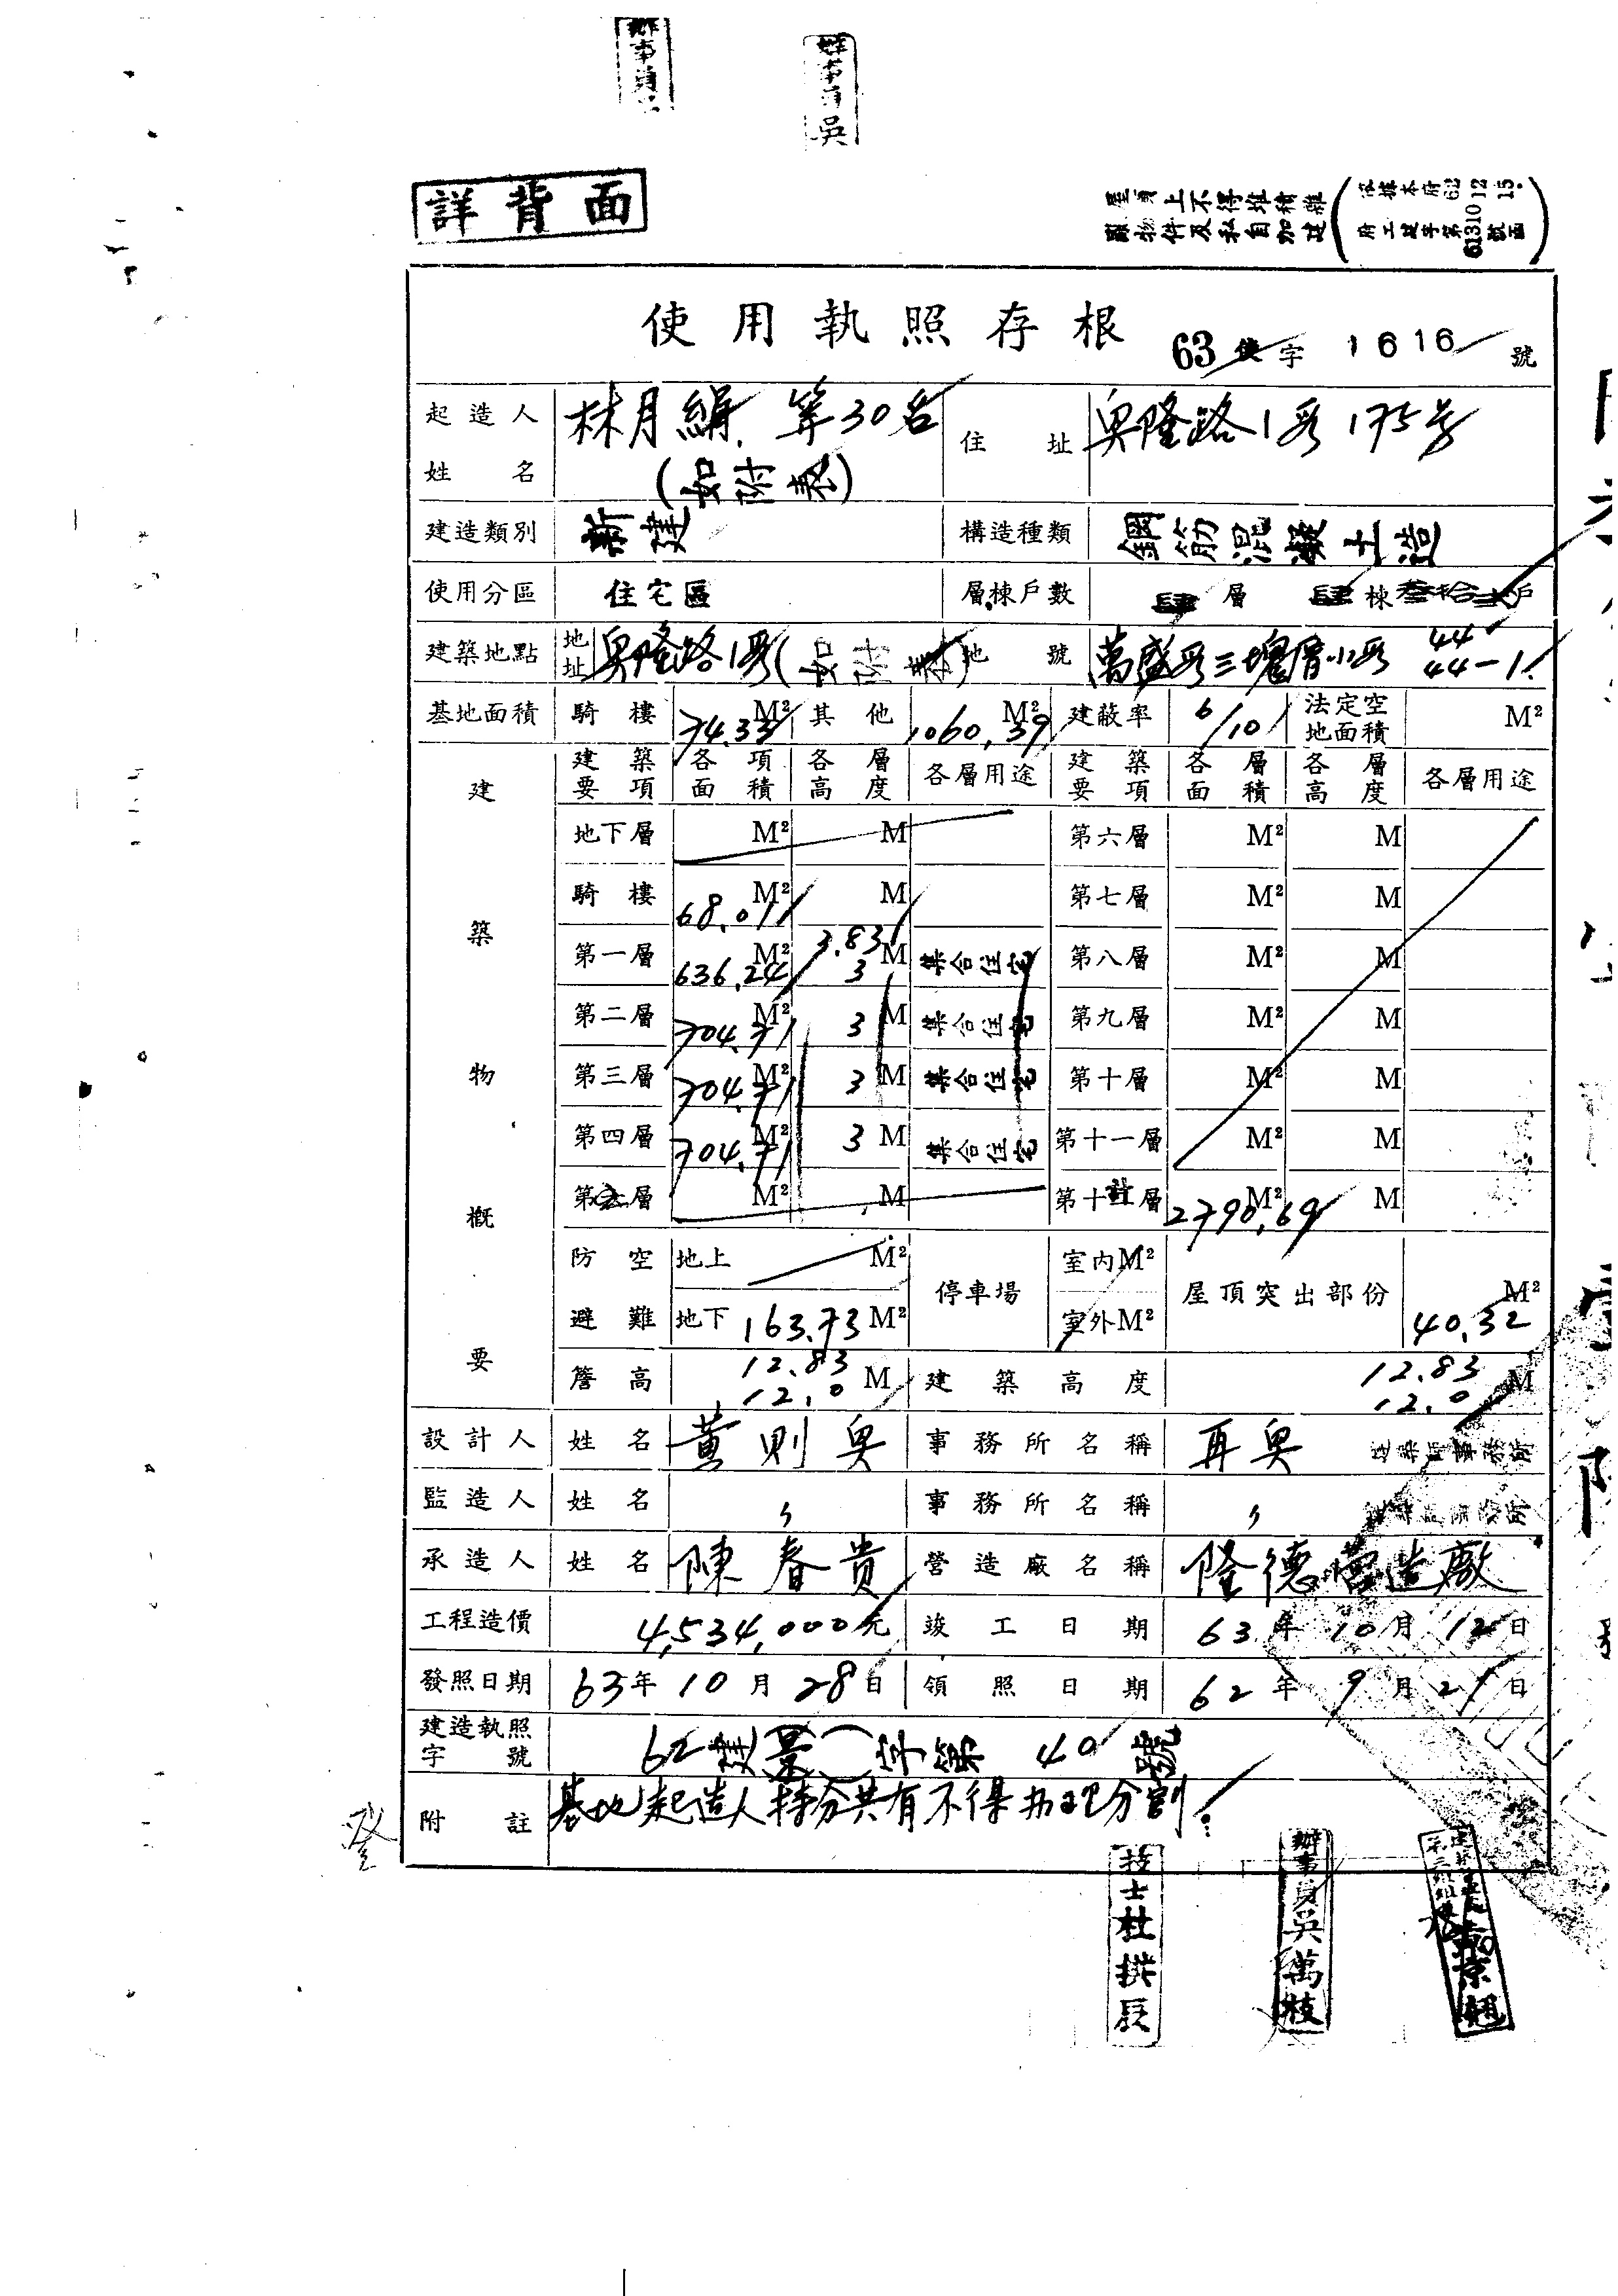 辦事員
辦事員吳
詳背面
屋頂上不得堆積雜
物件及私自加建
依據本府62 12 15.
府工建字第61310號函
使用執照存根 63使字 1616 號
起造人姓名 林月絹 等30名 (如附表) 住址 興隆路1段175号
建造類別 新建 構造種類 鋼筋混凝土造
使用分區 住宅區 層棟戶數 肆層 肆棟叁拾 戶
建築地點 地址 興隆路1段(如附表) 地號 萬盛段三塊厝小段 44 44-1
基地面積 騎樓 74.33 M² 其他 1060.39 M² 建蔽率 6/10 法定空地面積 M²
建築物概要
建築要項 各項面積 各層高度 各層用途 建築要項 各層面積 各層高度 各層用途
地下層 M² M 第六層 M² M
騎樓 68.01 M² M 第七層 M² M
第一層 636.24 M² 3.83 3 M 集合住宅 第八層 M² M
第二層 704.71 M² 3 M 集合住宅 第九層 M² M
第三層 704.71 M² 3 M 集合住宅 第十層 M² M
第四層 704.71 M² 3 M 集合住宅 第十一層 M² M
第 層 M² M 第十計層 2790.69 M² M
防空避難 地上 M² 停車場 室內M² 屋頂突出部份 M²
地下 163.73 M² 室外M² 40.32
簷高 12.83 12.0 M 建築高度 12.83 12.0 M
設計人 姓名 黃則奧 事務所名稱 再奧 建築師事務所
監造人 姓名 〃 事務所名稱 〃 建築師事務所
承造人 姓名 陳春貴 營造廠名稱 隆德營造廠
工程造價 4,534,000元 竣工日期 63年10月12日
發照日期 63年10月28日 領照日期 62年9月21日
建造執照字號 62建(景)字第 40 號
附註 基地起造人持分共有不得辦理分割.
登
技士杜拱辰
辦事員吳萬枝